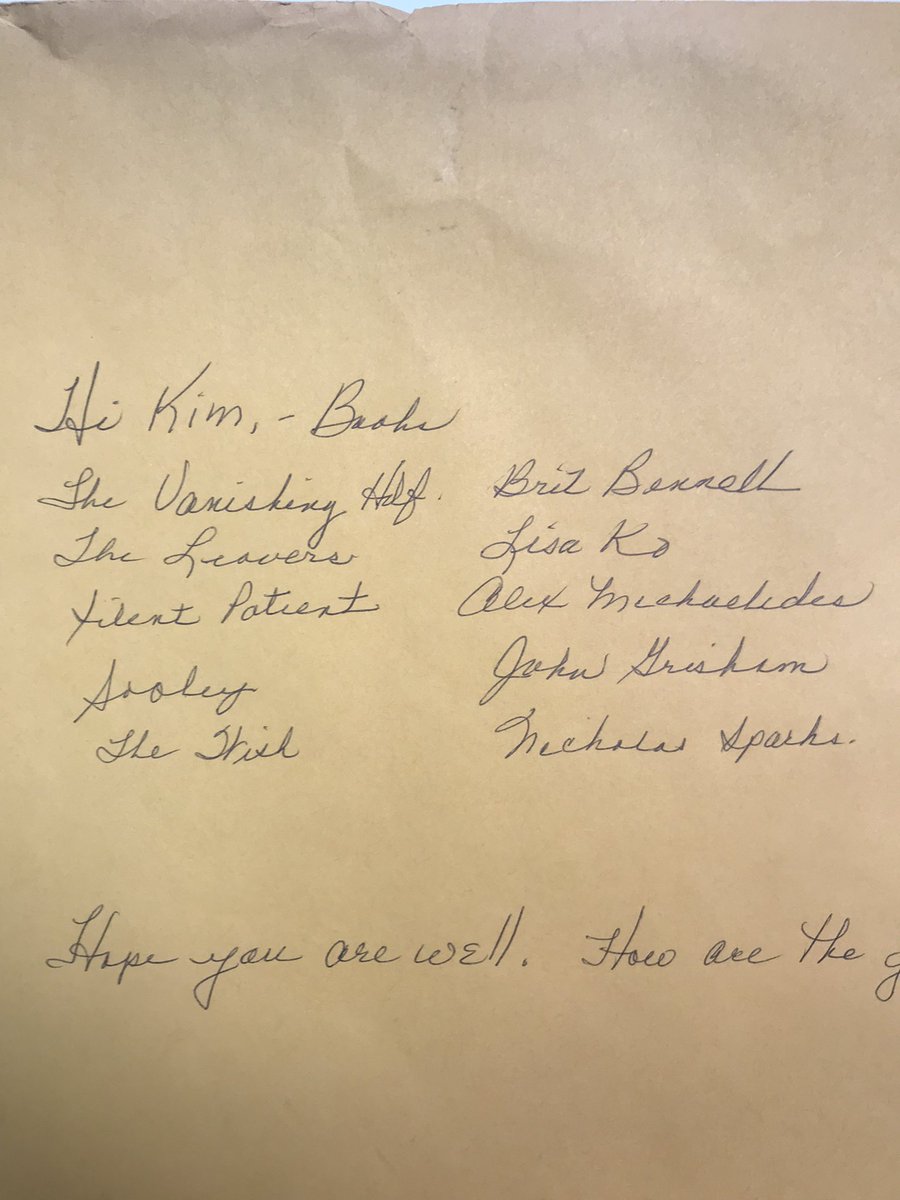 Hi Kim, - Books
The Vanishing Half. Brit Bennett
The Leavers Lisa Ko
Silent Patient Alex Michaelides
Sooley John Grisham
The Wish Nicholas Sparks.
Hope you are well. How are the